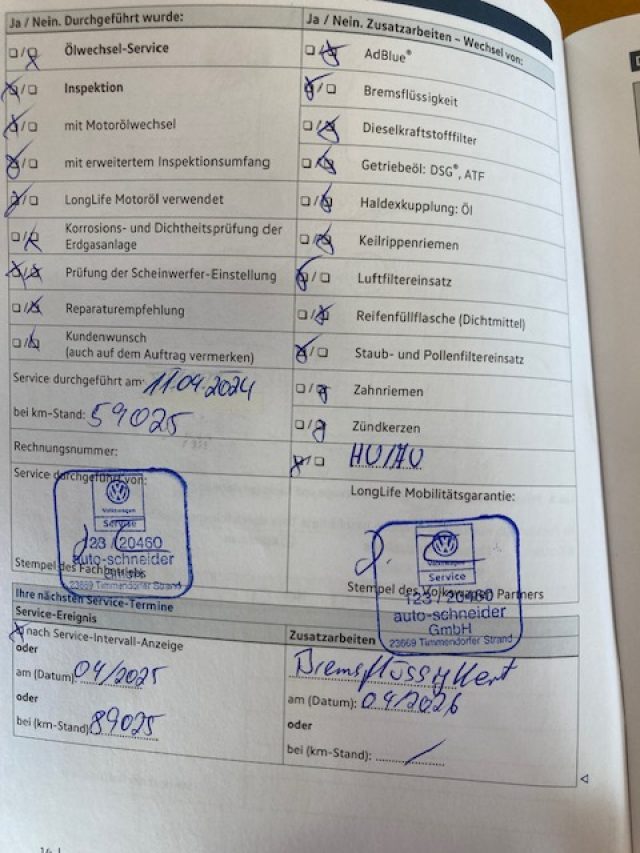 Ja / Nein. Durchgeführt wurde:
Ölwechsel-Service
Inspektion
mit Motorölwechsel
mit erweitertem Inspektionsumfang
LongLife Motoröl verwendet
Korrosions- und Dichtheitsprüfung der
Erdgasanlage
Prüfung der Scheinwerfer-Einstellung
Reparaturempfehlung
Kundenwunsch
(auch auf dem Auftrag vermerken)
Service durchgeführt am: 11.04.2024
bei km-Stand: 59025
Rechnungsnummer:
Service durchgeführt von:
Volkswagen
Service
123 / 20460
auto-schneider
GmbH
23669 Timmendorfer Strand
Stempel des Fachbetriebs
Ja / Nein. Zusatzarbeiten – Wechsel von:
AdBlue®
Bremsflüssigkeit
Dieselkraftstofffilter
Getriebeöl: DSG®, ATF
Haldexkupplung: Öl
Keilrippenriemen
Luftfiltereinsatz
Reifenfüllflasche (Dichtmittel)
Staub- und Pollenfiltereinsatz
Zahnriemen
Zündkerzen
HU/AU
LongLife Mobilitätsgarantie:
Volkswagen
Service
123 / 20460
auto-schneider
GmbH
23669 Timmendorfer Strand
Stempel des Volkswagen Partners
Ihre nächsten Service-Termine
Service-Ereignis
nach Service-Intervall-Anzeige
oder
am (Datum): 04/2025
oder
bei (km-Stand): 89025
Zusatzarbeiten
Bremsflüssigkeit
am (Datum): 04/2026
oder
bei (km-Stand):
16